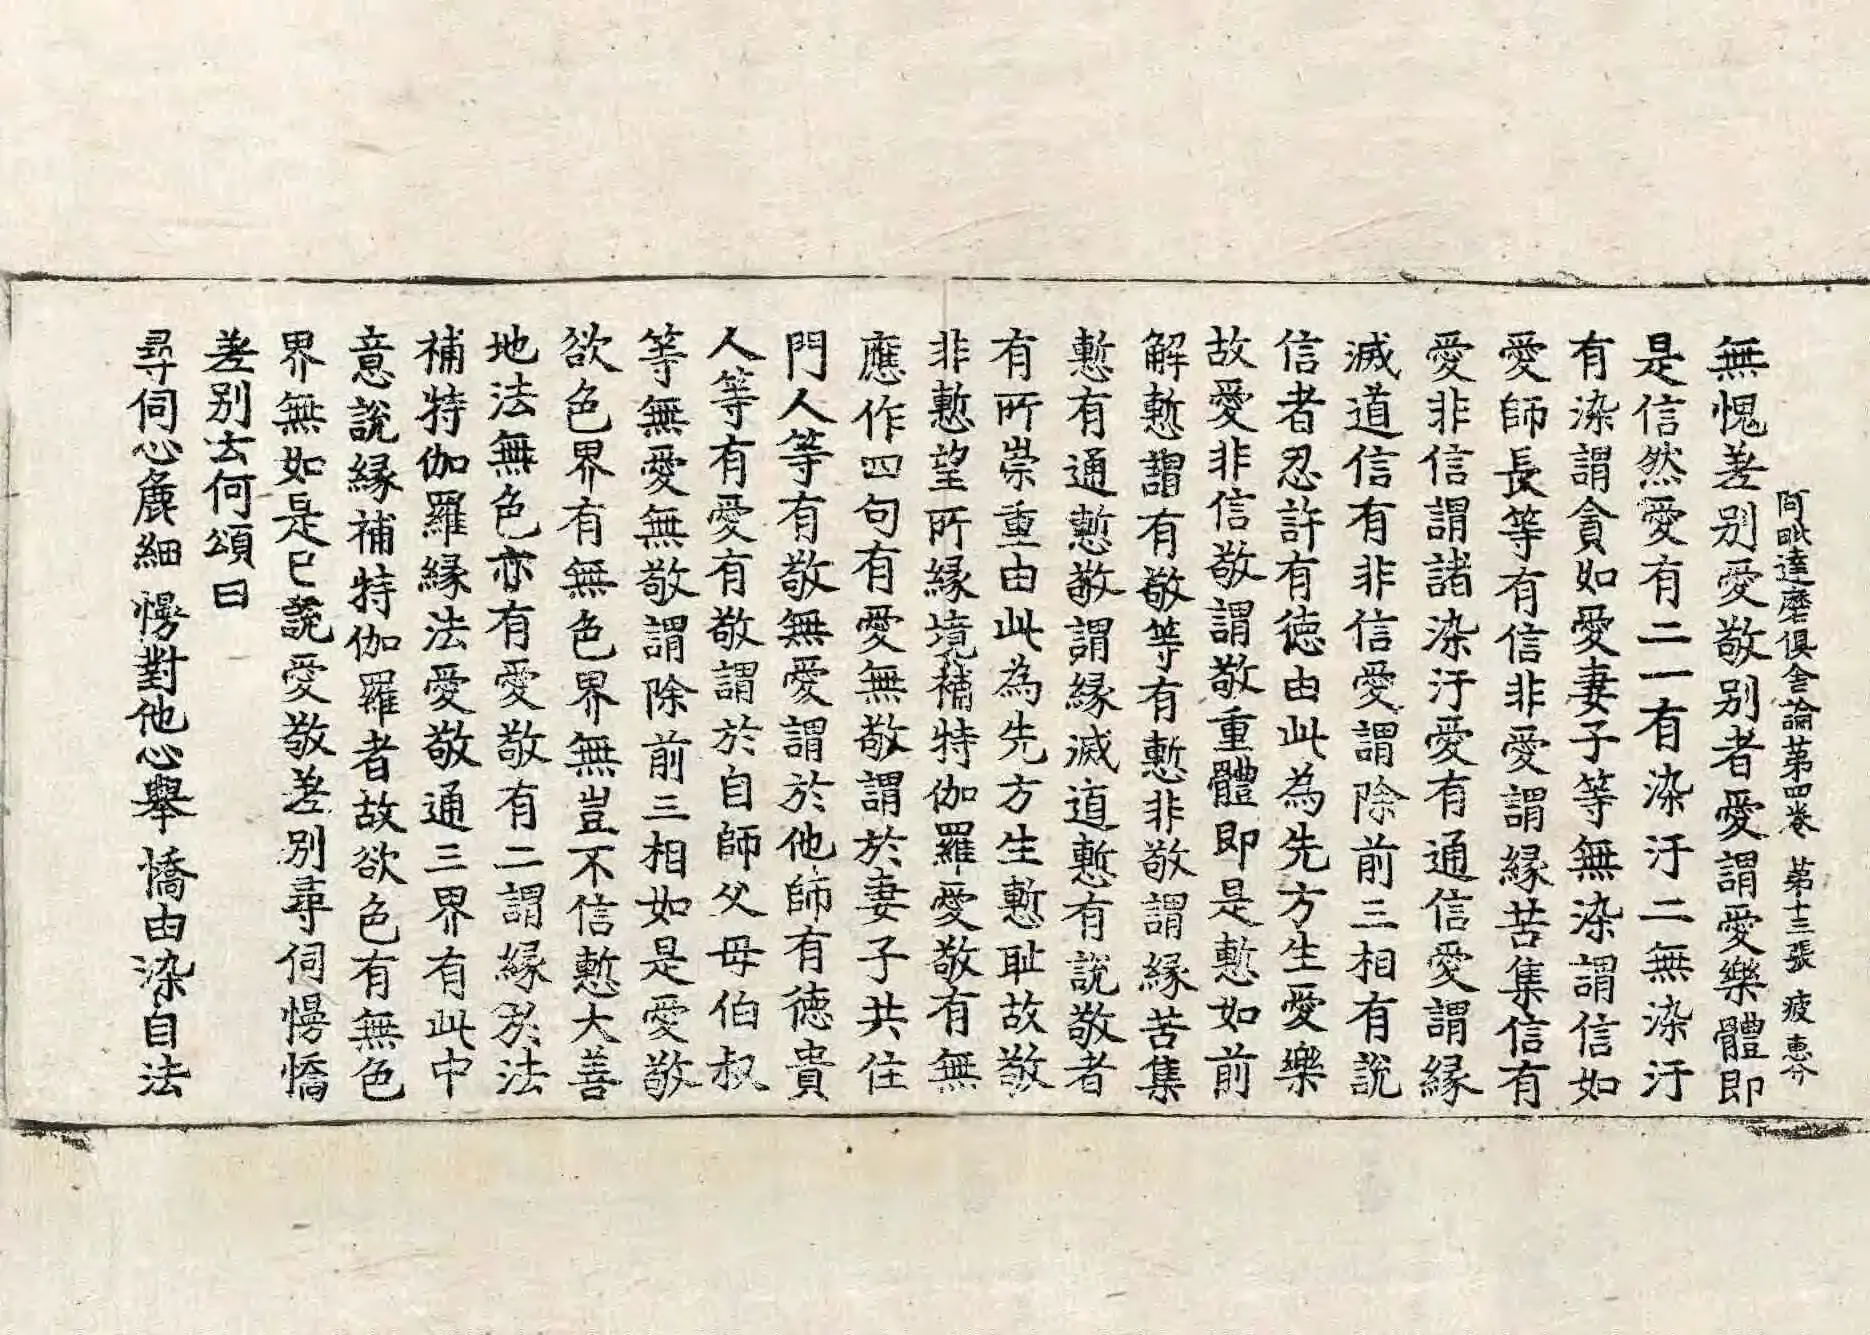 阿毗達磨俱舍論苐四卷 苐十三張 疲
無愧差別愛敬別者愛謂愛樂體即
是信然愛有二一有染汙二無染汙
有染謂貪如愛妻子等無染謂信如
愛師長等有信非愛謂縁苦集信有
愛非信謂諸染汙愛有通信愛謂縁
滅道信有非信愛謂除前三相有說
信者忍許有徳由此為先方生愛樂
故愛非信敬謂敬重體即是慙如前
解慙謂有敬等有慙非敬謂縁苦集
慙有通慙敬謂縁滅道慙有說敬者
有所崇重由此為先方生慙耻故敬
非慙望所縁境補特伽羅愛敬有無
應作四句有愛無敬謂於妻子共住
門人等有敬無愛謂於他師有徳貴
人等有愛有敬謂於自師父母伯叔
等無愛無敬謂除前三相如是愛敬
欲色界有無色界無豈不信慙大善
地法無色亦有愛敬有二謂縁於法
補特伽羅縁法愛敬通三界有此中
意說縁補特伽羅者故欲色有無色
界無如是已說愛敬差別尋伺慢憍
差別云何頌曰
尋伺心麁細 慢對他心舉 憍由染自法